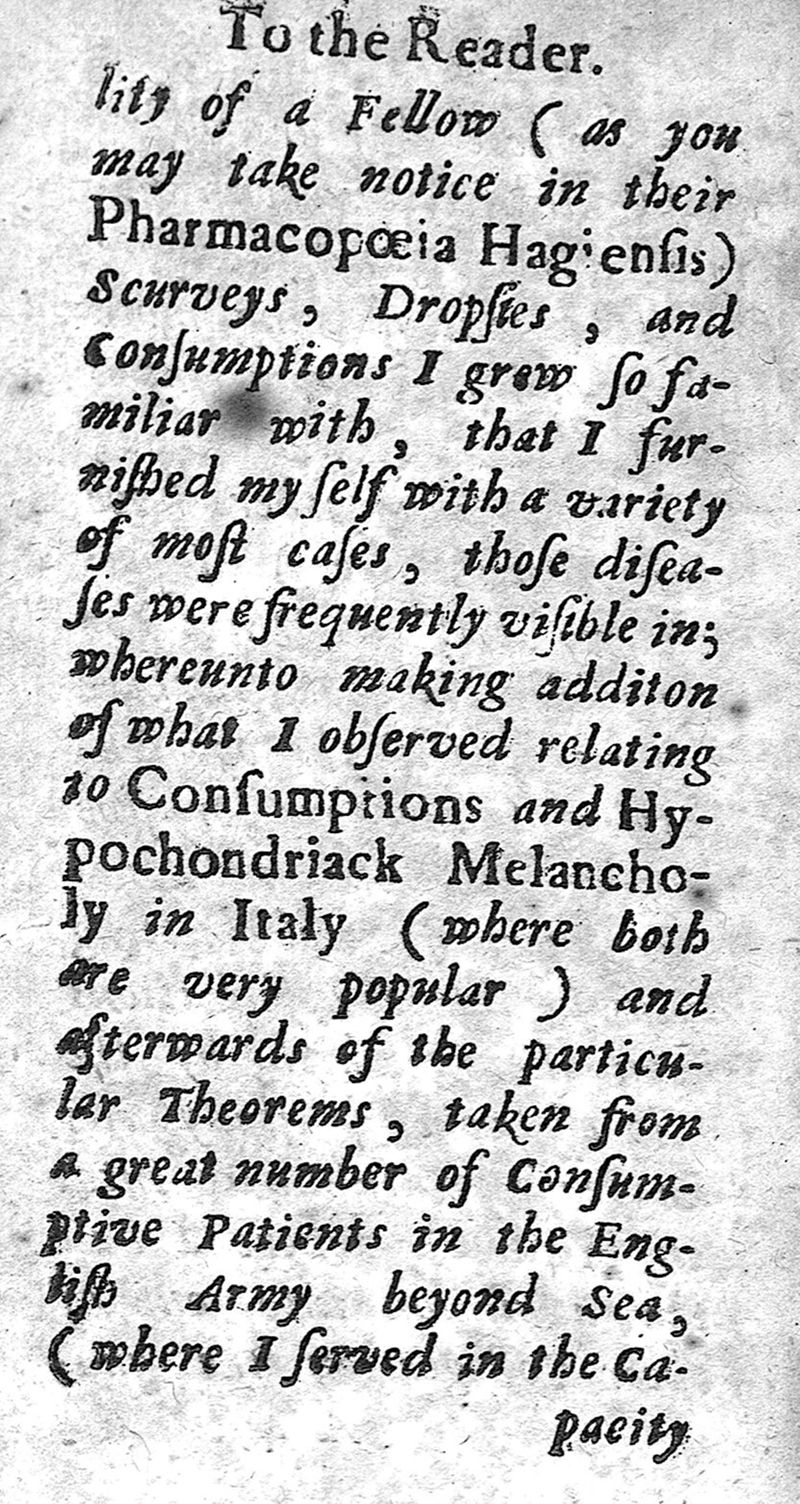 To the Reader.
lity of a Fellow ( as you
may take notice in their
Pharmacopœia Hagienſis)
Scurveys, Dropſies, and
Conſumptions I grew ſo fa-
miliar with, that I fur-
niſhed my ſelf with a variety
of moſt caſes, thoſe diſea-
ſes were frequently viſible in;
whereunto making additon
of what I obſerved relating
to Conſumptions and Hy-
pochondriack Melancho-
ly in Italy ( where both
are very popular ) and
afterwards of the particu-
lar Theorems, taken from
a great number of Conſum-
ptive Patients in the Eng-
liſh Army beyond Sea,
( where I ſerved in the Ca-
pacity